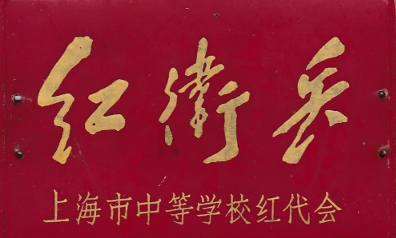 红衛兵
上海市中等学校红代会